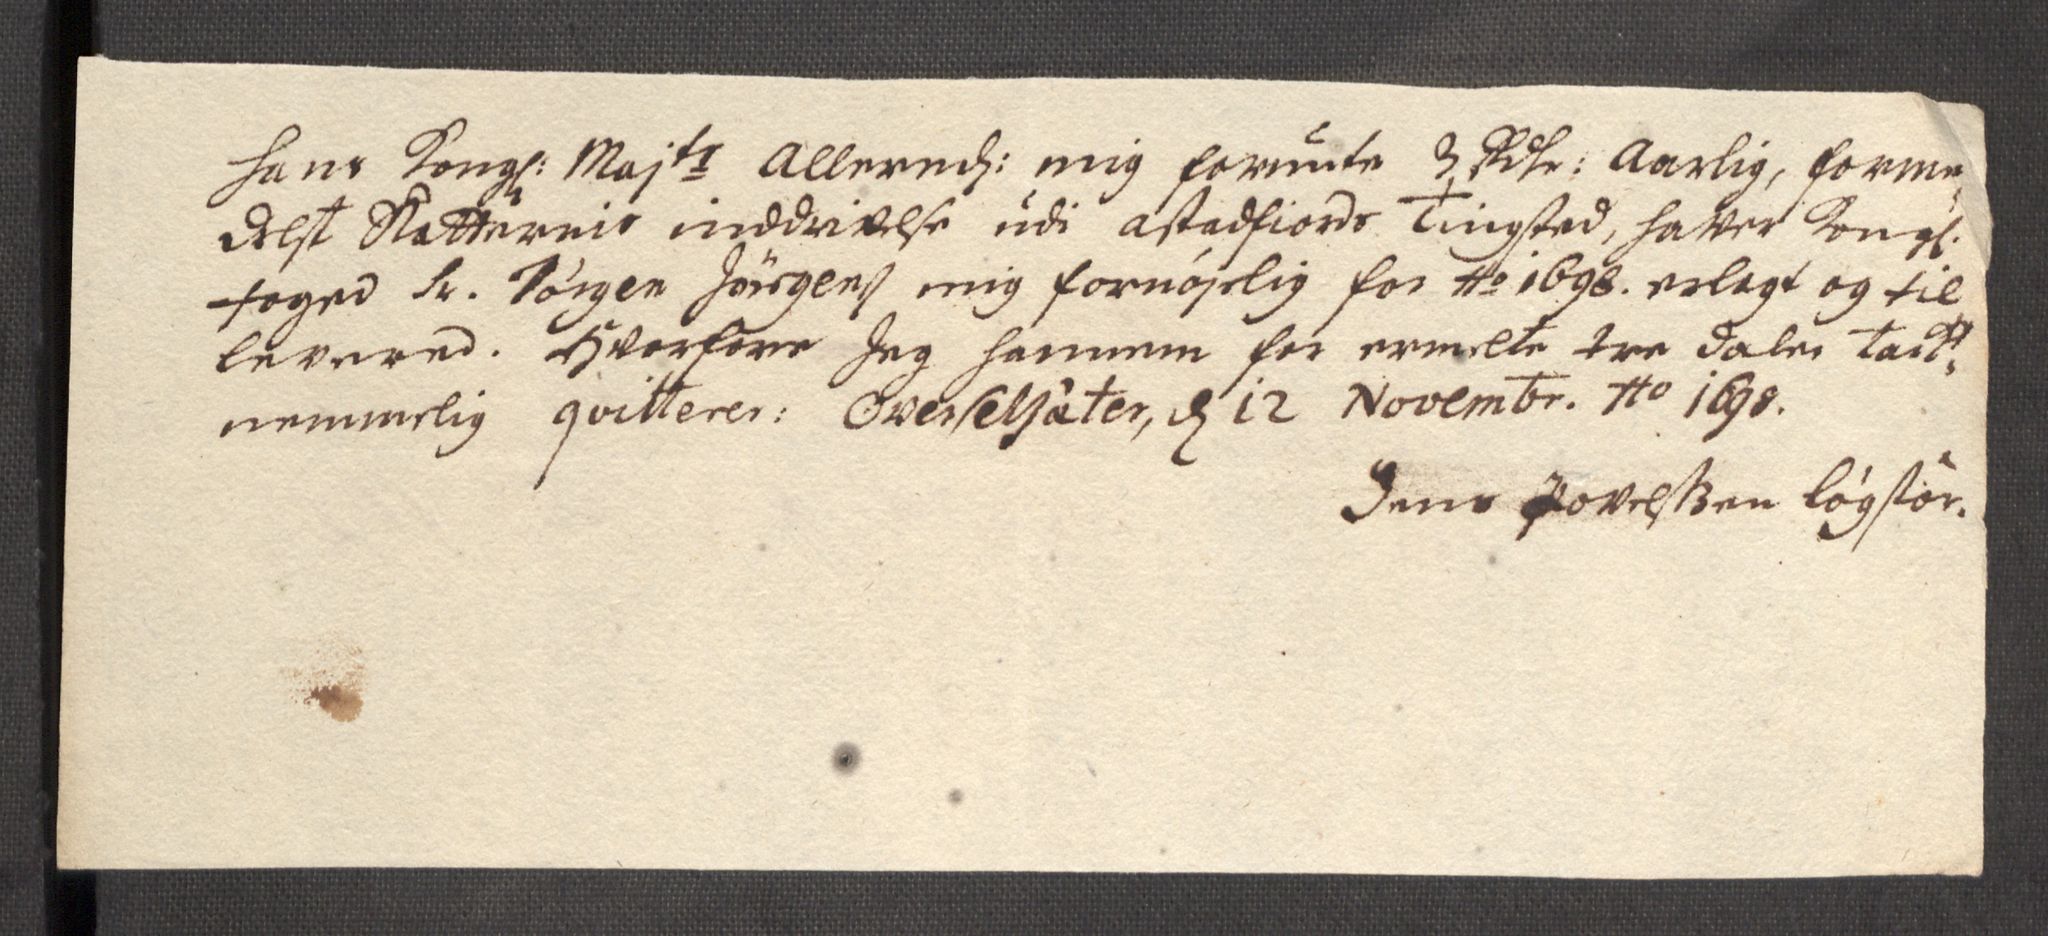 Hans Kongl: Majts Allernd: mig forunte 3 Rdlr: Aarlig, forme-
delst Skatternis inddrivelse udi Astadfiords Tingsted, haver Kongl.
foged Sr. Jörgen Jörgens mig fornøjelig for Ao 1698. erlegt og til
levered. Hvorfore Jeg hannem for ermelte tre daler tack-
nemmelig qvitterer: Overseljäter, d 12 Novembr. Ao 1698.
Jens Povelssen Løgstör.